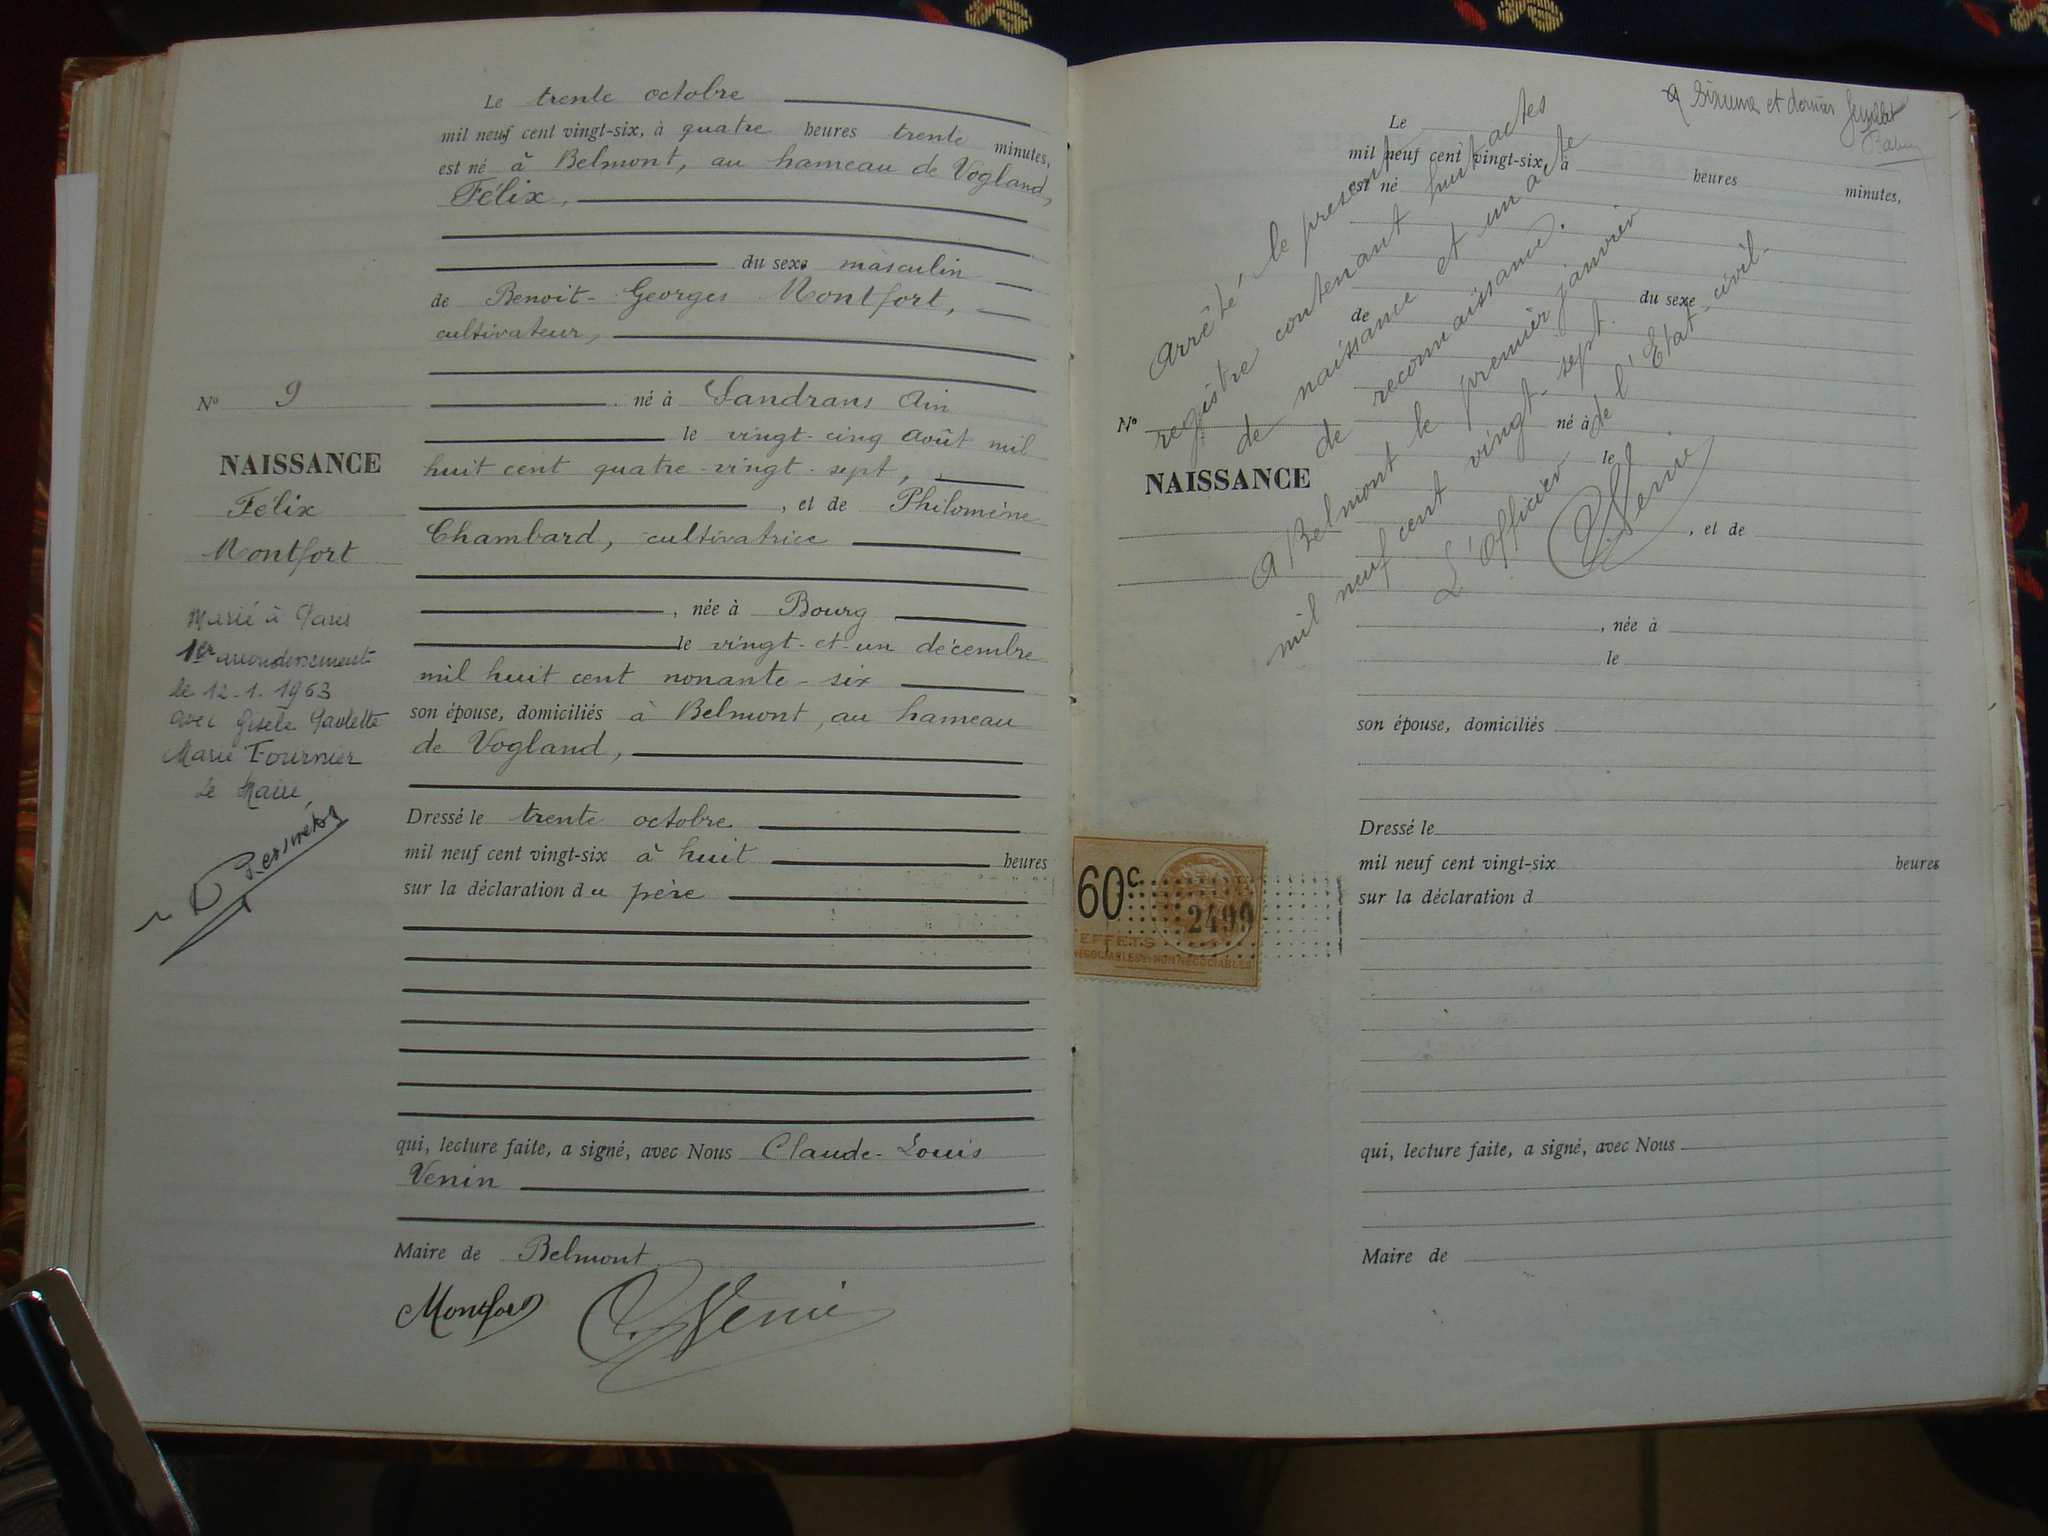 Le trente octobre
mil neuf cent vingt-six, à quatre heures trente minutes,
est né à Belmont, au hameau de Vogland,
Félix,
du sexe masculin
de Benoit-Georges Montfort,
cultivateur,
né à Sandrans Ain
le vingt-cinq août mil
huit cent quatre-vingt-sept,
, et de Philomène
Chambard, cultivatrice
, née à Bourg
le vingt-et-un décembre
mil huit cent nonante-six
son épouse, domiciliés à Belmont, au hameau
de Vogland,
Dressé le trente octobre
mil neuf cent vingt-six à huit heures
sur la déclaration du père
qui, lecture faite, a signé, avec Nous Claude-Louis
Venin
Maire de Belmont
Montfort
C. Venin
No 9
NAISSANCE
Félix
Montfort
Marié à Paris
1er arrondissement
le 12-1.1963
avec Gisèle Paulette
Marie Fournier
Le Maire,
Sixième et dernier feuillet
Le
mil neuf cent vingt-six, à heures minutes,
est né
du sexe
de
né à
le
, et de
, née à
le
son épouse, domiciliés
Dressé le
mil neuf cent vingt-six heures
sur la déclaration d
qui, lecture faite, a signé, avec Nous
Maire de
No
NAISSANCE
Arrêté le présent
registre contenant huit actes
de naissance et un acte
de reconnaissance.
A Belmont le premier janvier
mil neuf cent vingt-sept.
L'Officier de l'Etat-civil-
C. Venin
60c
2499
EFFETS
NÉGOCIABLES & NON NÉGOCIABLES